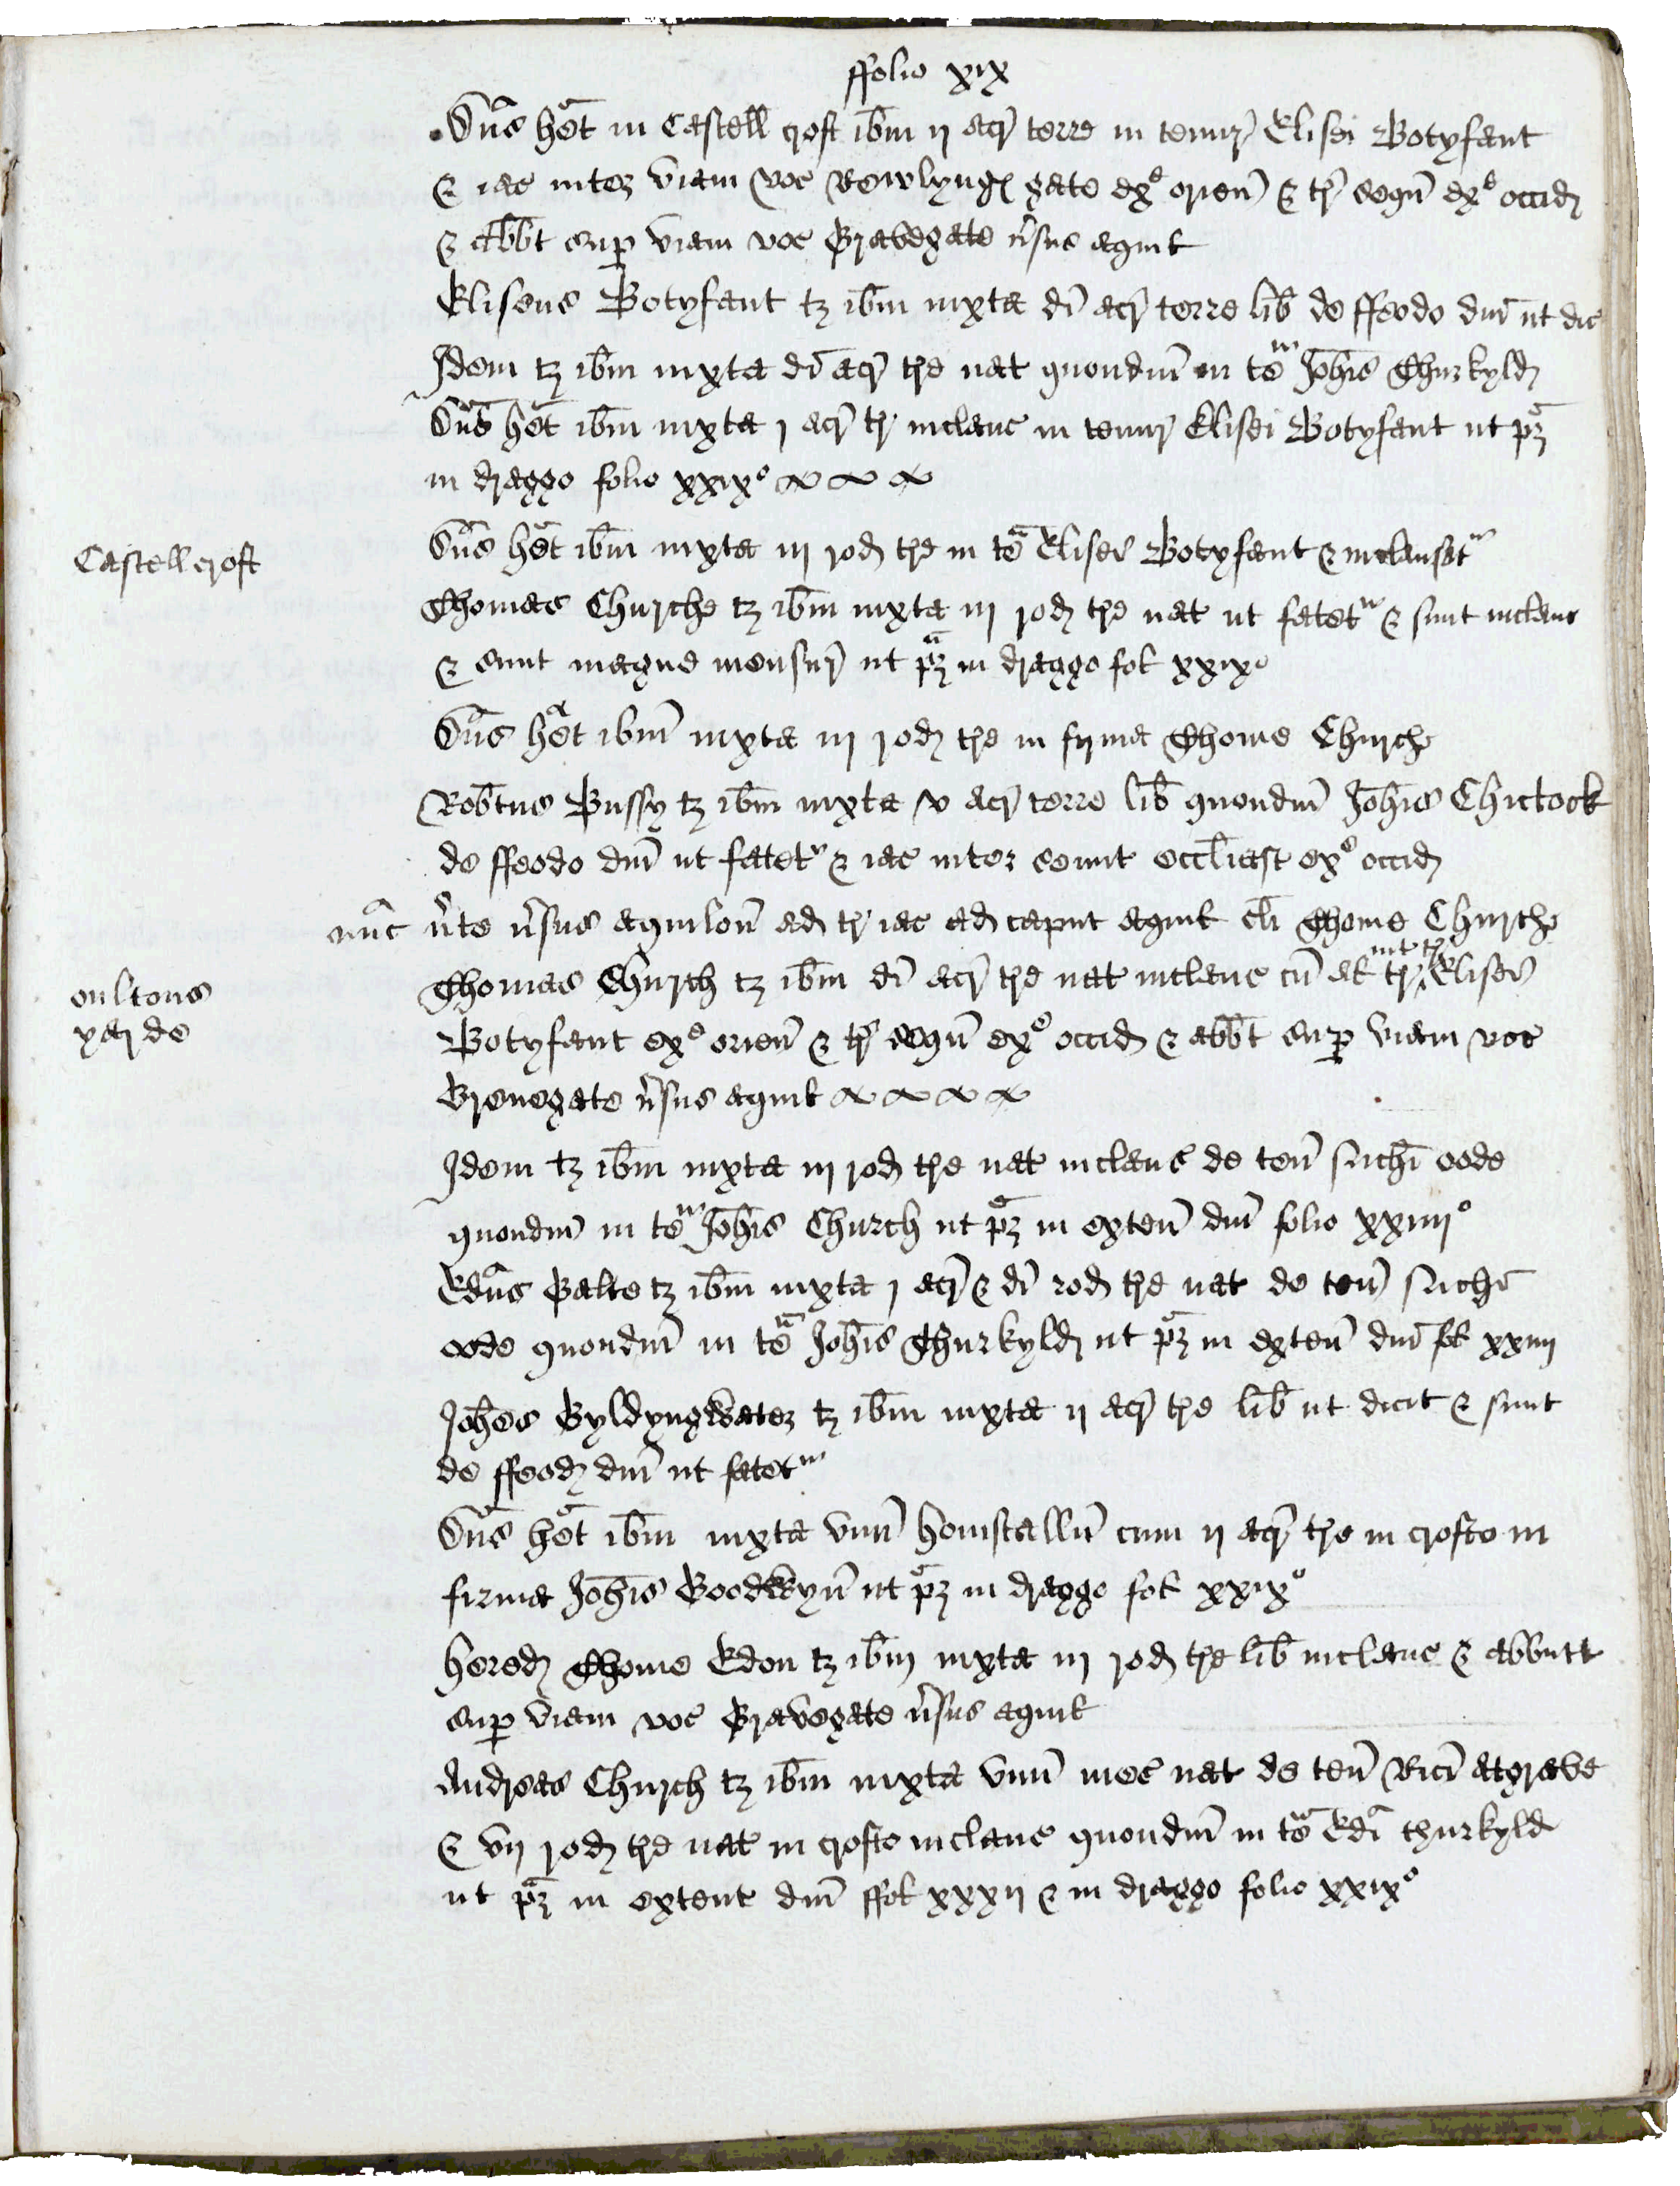 ffolio xix
Dn̄s het in Castell croft ibm ij acr terre in tenur Elisei Botyfant
& iac inter viam voc Rowlyng gate ex orien & tr sequ ex occid
& abbt sup viam voc Gravegate vsus aquil
Eliseus Botyfant tz ibm iuxta di acr terre lib de ffeodo dni ut dic
Idem tz ibm iuxta di acr tre nat quondm in te Johis Thurkyld
Dn̄s het ibm iuxta j acr tr inclaus in tenur Elisei Botyfant ut pz
in dragge folio xxixo
Castell croft
Dn̄s het ibm iuxta iij rod tre in te Elisei Botyfant & inclusat
Thomas Churche tz ibm iuxta iij rod tre nat ut fatet & sunt inclaus
& sunt magne mensur ut pz in dragge fol xxixo
Dn̄s het ibm iuxta iij rod tre in firma Thome Church
Robtus Bussy tz ibm iuxta v acr terre lib quondm Johis Chictock
de ffeodo dni ut fatet & iac inter comit eccliast ex occid
nūc vte vsus aquilon ad tr iac ad caput aquil cli Thome Church
oultons
yarde
Thomas Church tz ibm di acr tre nat inclaus cū al tr int tr Elisei
Botyfant exo orien & tr sequ exo occid & abbt sup viam voc
Grenegate vsus aquil
Idem tz ibm iuxta iij rod tre nat inclaus de ten suchī ode
quondm in te Johis Church ut pz in exten dni folio xxiiijo
Edn̄s Palte tz ibm iuxta j acr & di rod tre nat de ten suchī
ode quondm in te Johis Thurkyld ut pz in exten dni fol xxiiij
Johes Gyldyngwater tz ibm iuxta ij acr tre lib ut dicit & sunt
de ffeod dni ut fatet
Dn̄s het ibm iuxta vnū homstallū cum ij acr tre in crofto in
firma Johis Goodwyn ut pz in dragge fol xxixo
hered Thome Edon tz ibm iuxta iij rod tre lib inclaus & abbutt
sup viam voc Gravegate vsus aquil
Andreas Church tz ibm iuxta vnū mes nat de ten Rici atgrave
& vij rod tre nat in crofto inclaus quondm in te Edi thurkyld
ut pz in extent dni ffol xxxij & in dragge folio xxixo